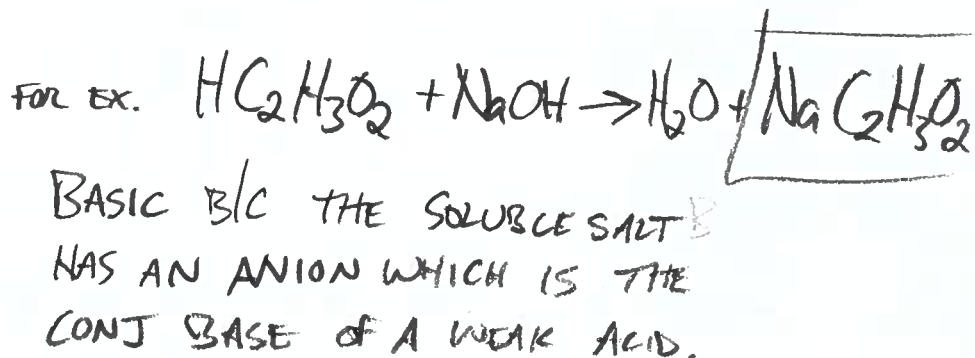 FOR EX. HC₂H₃O₂ + NaOH → H₂O + NaC₂H₃O₂
BASIC B/C THE SOLUBLE SALT
HAS AN ANION WHICH IS THE
CONJ BASE of A WEAK ACID.